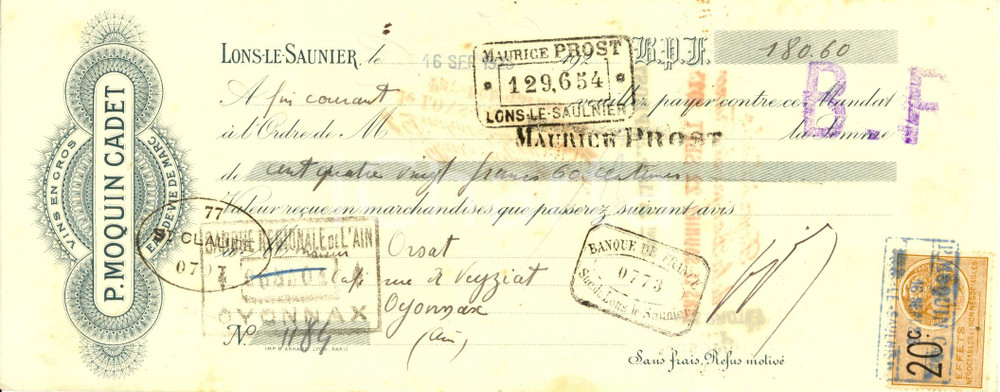 VINS EN GROS
P. MOQUIN CADET
EAU-DE-VIE DE MARC
LONS-LE-SAUNIER, le 16 SEP 192
B.P.F. 180,60
MAURICE PROST
129,654
LONS-LE-SAULNIER
A fin courant veuillez payer contre ce Mandat
à l'Ordre de M MAURICE PROST la somme
B-F
de cent quatre vingt francs 60 centimes
Valeur reçue en marchandises que passerez suivant avis
77
CLAU
BANQUE REGIONALE DE L'AIN
OYONNAX
Orsat
Café rue de Veyziat
Oyonnax
(Ain)
BANQUE DE FRANCE
0773
Succle Lons le Saunier
No 1184
IMP. B. ARNAUD, LYON-PARIS
Sans frais, Refus motivé
20c
EFFETS
NÉGOCIABLES & NON NÉGOCIABLES